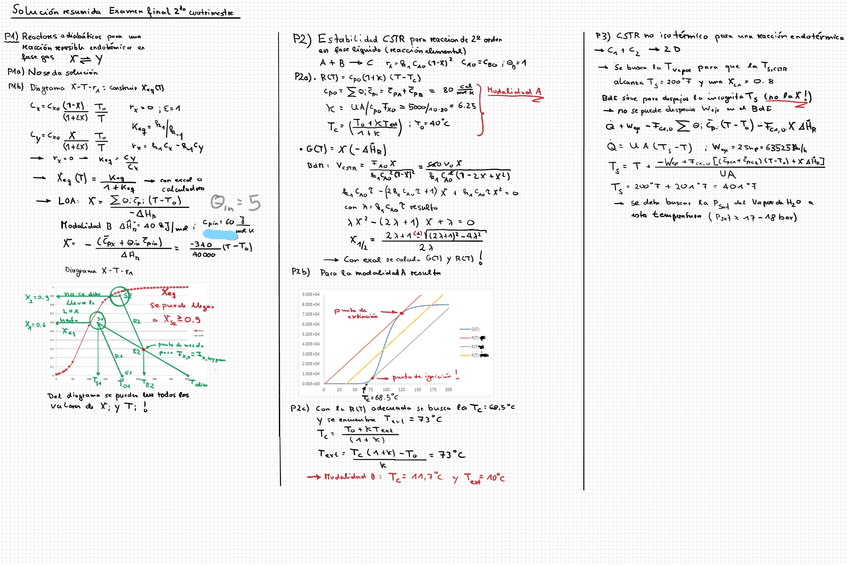 Solución resumida Examen final 2do cuatrimestre
P1) Reactores adiabáticos para una
reacción reversible endotérmica en
fase gas X ⇌ Y
P1a) No se da solución
P1b) Diagrama X-T-r₁: construir X_eq(T)
C_x = C_x0 (1-X)/(1+εX) T₀/T r_x = 0 ; ε = 1
C_y = C_x0 X/(1+εX) T₀/T K_eq = k₁/k₋₁
r_x = k₁C_x - k₋₁C_y
→ r_x = 0 → K_eq = C_y/C_x
→ X_eq(T) = K_eq/(1+K_eq) → con excel o
calculadora
→ LOA: X = Σθᵢ c̄pᵢ (T-T₀)/-ΔH_R θin = 5
Modalidad B ΔH_R = 40 kJ/mol ; Cpin: 60 J/mol K
X = -(c̄px + θin c̄pin)/ΔH_R = -340/40000 (T-T₀)
Diagrama X-T-r₁
X₂=0.9 no se debe
llevar la
LOA
hasta
X_eq
X₁=0.6
Xeq
se puede llegar
a X_S2 ≥ 0.9
S2
S1
R2
R1
E2
E1
punto de mezcla
T_S1 T_01 T_E2
Del diagrama se pueden leer todos los
valores de Xᵢ y Tᵢ !
P2) Estabilidad CSTR para reaccion de 2º orden
en fase líquido (reacción elemental)
A + B → C r₁ = k₁C_A0(1-X)² C_A0 = C_B0 ; θ_B = 1
P2a). R(T) = c_p0(1+κ)(T-T_c)
c_p0 = Σθᵢ c̄pᵢ = c̄pA + c̄pB = 80 cal/mol K
Modalidad A
κ = UA/c_p0 F_A0 = 5000/10·80 = 6.25
T_c = (T₀ + κT_ext)/(1+κ) ; T₀ = 40°C
• G(T) = X(-ΔH_R)
BdM: V_CSTR = F_A0 X/k₁C_A0²(1-X)² = C_A0 v₀ X/k₁C_A0²(1-2X+X²)
k₁C_A0 τ - (2k₁C_A0 τ + 1) X + k₁C_A0 τ X² = 0
con λ = k₁C_A0 τ resulta
λX² - (2λ+1) X + λ = 0
X₁/₂ = 2λ+1 (±) √((2λ+1)² - 4λ²)/2λ
→ Con excel se calcula G(T) y R(T) !
P2b) Para la modalidad A resulta
9.00E+04
8.00E+04
7.00E+04
6.00E+04
5.00E+04
4.00E+04
3.00E+04
2.00E+04
1.00E+04
0.00E+00
0 25 50 75 100 125 150 175 200
punto de
extinción
punto de ignición !
G(T)
R(T)
R(T)
R(T)
T_c = 68.5°C
P2c) Con la R(T) adecuada se busca la T_c = 68.5°C
y se encuentra T_ext = 73°C
T_c = (T₀ + κT_ext)/(1+κ)
T_ext = (T_c(1+κ) - T₀)/κ = 73°C
→ Modalidad B: T_c = 11,7°C y T_ext = 10°C
P3) CSTR no isotérmico para una reacción endotérmica
→ C₁ + C₂ → 2 D
→ Se busca la T_vapor para que la T_S,CSTR
alcanza T_S = 200°F y una X_C1 = 0.8
BdE sirve para despejar la incognita T_S (no la X!)
→ no se puede despreciar W_eje en el BdE
Q̇ + W_eje - F_C1,0 Σθᵢ c̄pᵢ (T-T₀) - F_C1,0 X ΔH_R
Q̇ = UA (T_S - T) ; W_eje = 25hp = 63525 Btu/h
T_S = T + (-W_eje + F_C1,0 [(c̄pC1 + c̄pC2)(T-T₀) + XΔH_R])/UA
T_S = 200°F + 201°F = 401°F
→ se debe buscar la P_sat del vapor de H₂O a
esta temperatura (P_sat ≈ 17-18 bar)